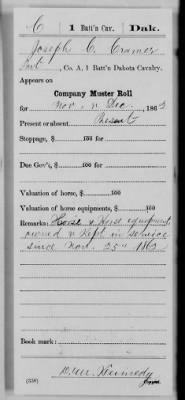 C 1 Batt'n Cav. Dak.
Joseph C. Cramer
Pvt, Co. A, 1 Batt'n Dakota Cavalry.
Appears on
Company Muster Roll
for Nov. & Dec., 1862
Present or absent, Present
Stoppage, $ 100 for
Due Gov't, $ 100 for
Valuation of horse, $ 100
Valuation of horse equipments, $ 100
Remarks: Horse & Horse equipments
owned & kept in service
since Nov. 25" 1862
Book mark:
Kennedy
(358) Copyist.